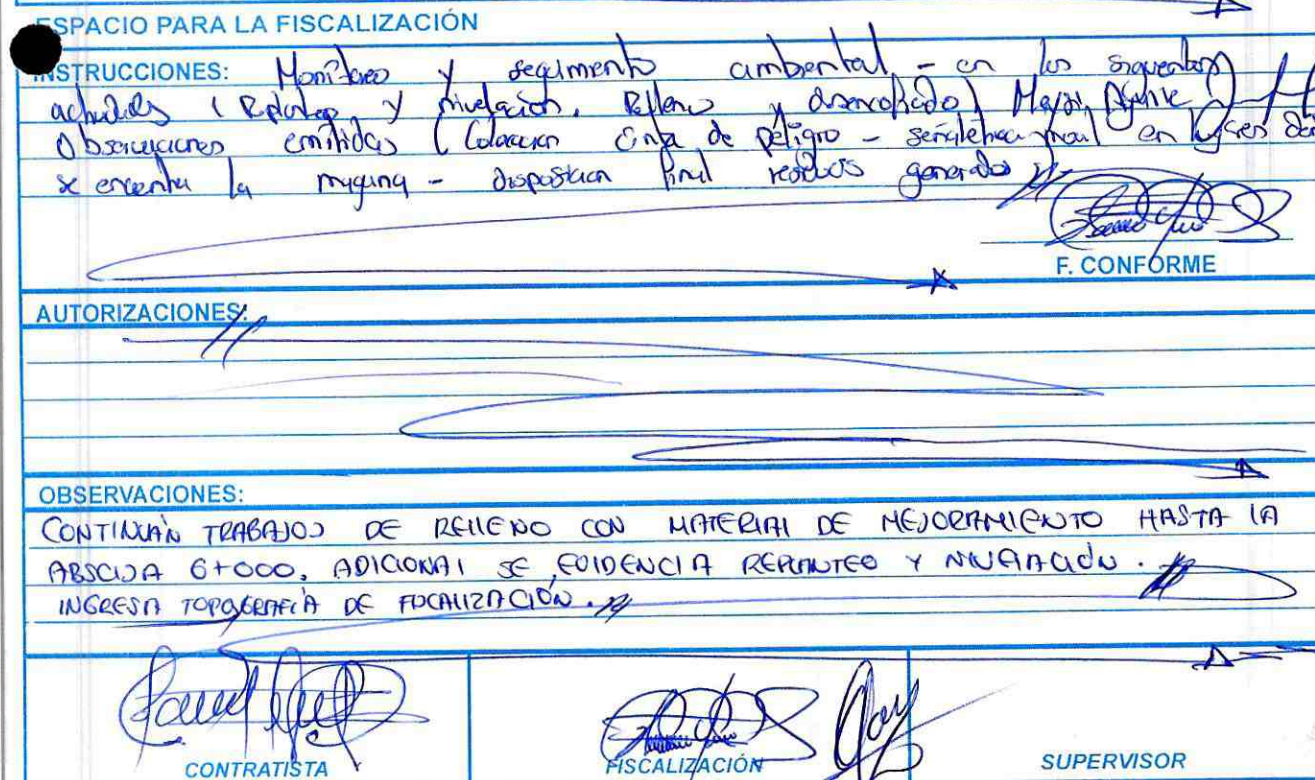 ESPACIO PARA LA FISCALIZACIÓN
INSTRUCCIONES: Monitoreo y seguimento ambiental - en los siguientes
actividades (Replanteo y nivelación, Relleno y desencofrado)
Observaciones emitidas (Colocacion Cinta de peligro - señaletica movil en lugares
se encentra la maquina - disposicion final residuos generados
F. CONFORME
AUTORIZACIONES:
OBSERVACIONES:
CONTINUÁN TRABAJOS DE RELLENO CON MATERIAL DE MEJORAMIENTO HASTA LA
ABSCISA 6+000, ADICIONAL SE EVIDENCIA REPLANTEO Y NIVELACIÓN.
INGRESA TOPOGRAFÍA DE FISCALIZACIÓN.
CONTRATISTA
FISCALIZACIÓN
SUPERVISOR